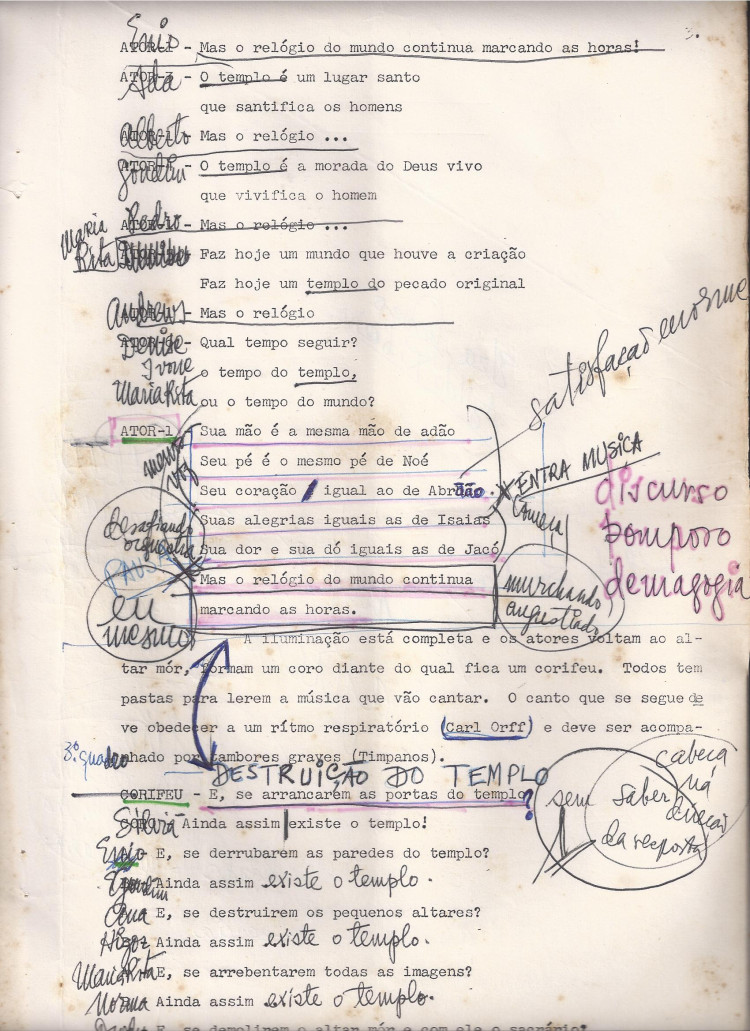 3.
Enio
ATOR-1 - Mas o relógio do mundo continua marcando as horas!
Ada
ATOR-3 - O templo é um lugar santo
que santifica os homens
Alberto
- Mas o relógio ...
- O templo é a morada do Deus vivo
que vivifica o homem
Pedro
- Mas o relógio ...
Maria
Rita
Faz hoje um mundo que houve a criação
Faz hoje um templo do pecado original
Andrews
- Mas o relógio
Denise - Qual tempo seguir?
Ivone
o tempo do templo,
Maria Rita
ou o tempo do mundo?
satisfação enorme
ATOR-1 - Sua mão é a mesma mão de adão
Seu pé é o mesmo pé de Noé
mesma voz
Seu coração igual ao de Abraão.
ENTRA MUSICA
Suas alegrias iguais as de Isaias
Sua dor e sua dó iguais as de Jacó
desafiando
orquestra
discurso
pomposo
demagogia
PAUSA
Mas o relógio do mundo continua
marcando as horas.
murchando
angustiado
eu
mesmo
A iluminação está completa e os atores voltam ao al-
tar mór, formam um coro diante do qual fica um corifeu. Todos tem
pastas para lerem a música que vão cantar. O canto que se segue de
ve obedecer a um rítmo respiratório (Carl Orff) e deve ser acompa-
nhado por tambores graves (Timpanos).
3º quadro
DESTRUIÇÃO DO TEMPLO
CORIFEU - E, se arrancarem as portas do templo?
sem saber
da resposta
cabeça
Silvia
Ainda assim existe o templo!
Enio
E, se derrubarem as paredes do templo?
Ainda assim existe o templo.
E, se destruirem os pequenos altares?
Ainda assim existe o templo.
Maria Rita
E, se arrebentarem todas as imagens?
Norma
Ainda assim existe o templo.
E, se demolirem o altar mór e com ele o sacrário?